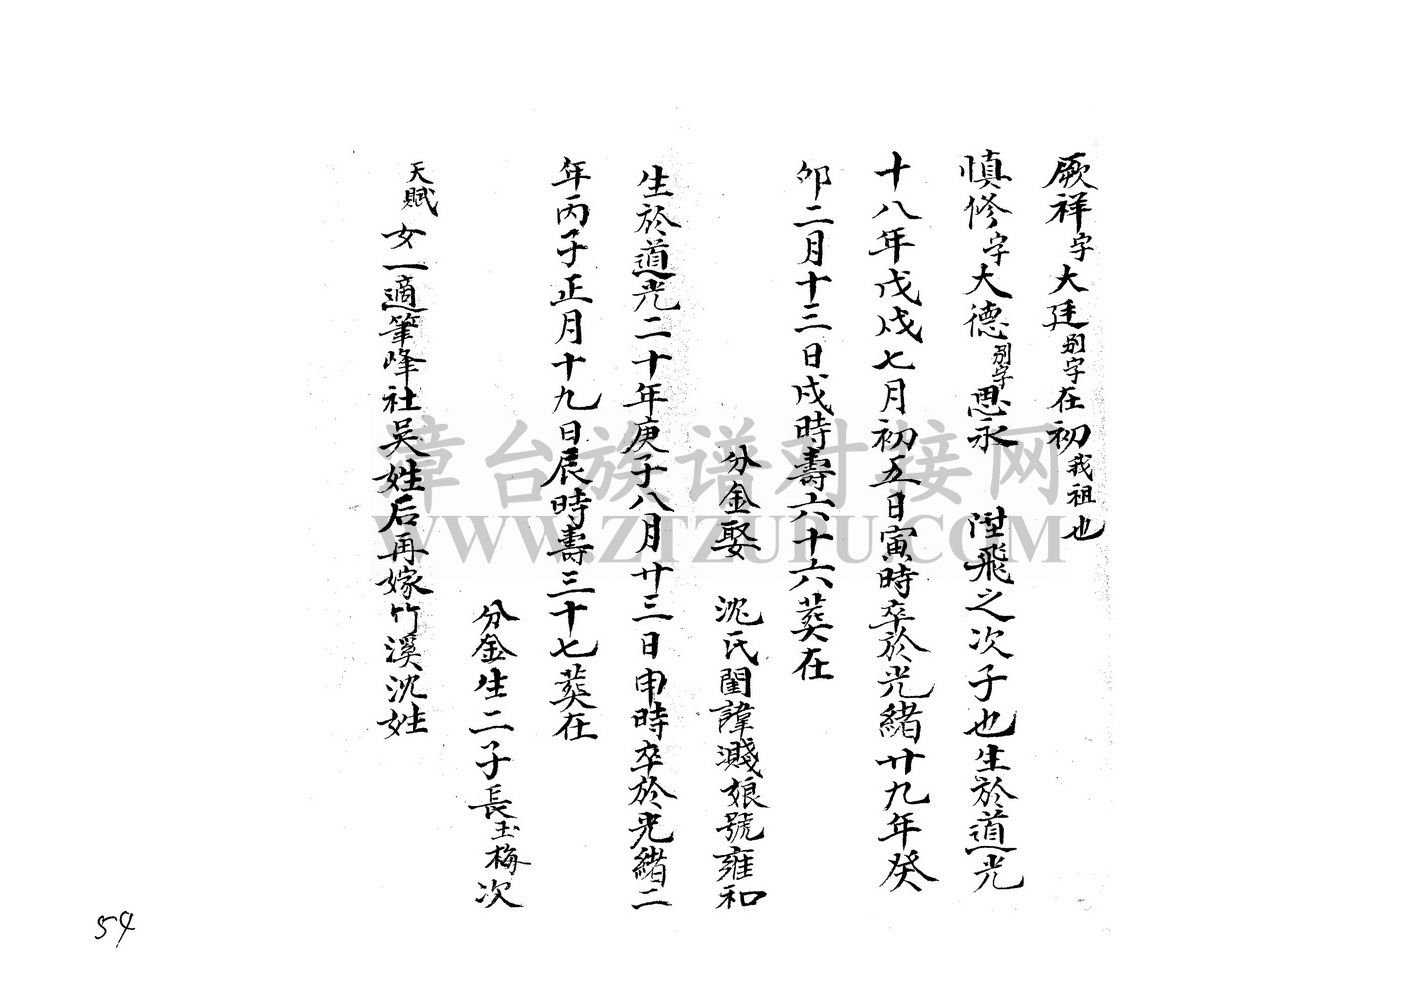 厥祥字大廷别字在初我祖也
慎修字大德别字思永 陞飛之次子也生於道光
十八年戊戌七月初五日寅時卒於光緒廿九年癸
卯二月十三日戌時壽六十六葬在
分金娶 沈氏閨諱濺娘號雍和
生於道光二十年庚子八月廿三日申時卒於光緒二
年丙子正月十九日辰時壽三十七葬在
分金生二子長玉梅次
天賦女一適筆峰社吴姓后再嫁竹溪沈姓
章台族谱对接网
WWW.ZTZUPU.COM
54